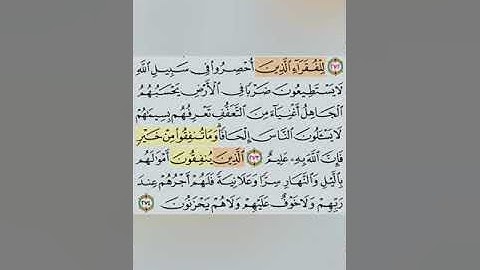 ٢٧٢ لِلْفُقَرَآءِ الَّذِينَ أُحْصِرُوا۟ فِى سَبِيلِ اللَّهِ
لَا يَسْتَطِيعُونَ ضَرْبًا فِى الْأَرْضِ يَحْسَبُهُمُ
الْجَاهِلُ أَغْنِيَآءَ مِنَ التَّعَفُّفِ تَعْرِفُهُم بِسِيمَٰهُمْ
لَا يَسْـَٔلُونَ النَّاسَ إِلْحَافًا ۗ وَمَا تُنفِقُوا۟ مِنْ خَيْرٍ
فَإِنَّ اللَّهَ بِهِۦ عَلِيمٌ ٢٧٣ الَّذِينَ يُنفِقُونَ أَمْوَٰلَهُم
بِالَّيْلِ وَالنَّهَارِ سِرًّا وَعَلَانِيَةً فَلَهُمْ أَجْرُهُمْ عِندَ
رَبِّهِمْ وَلَا خَوْفٌ عَلَيْهِمْ وَلَا هُمْ يَحْزَنُونَ ٢٧٤